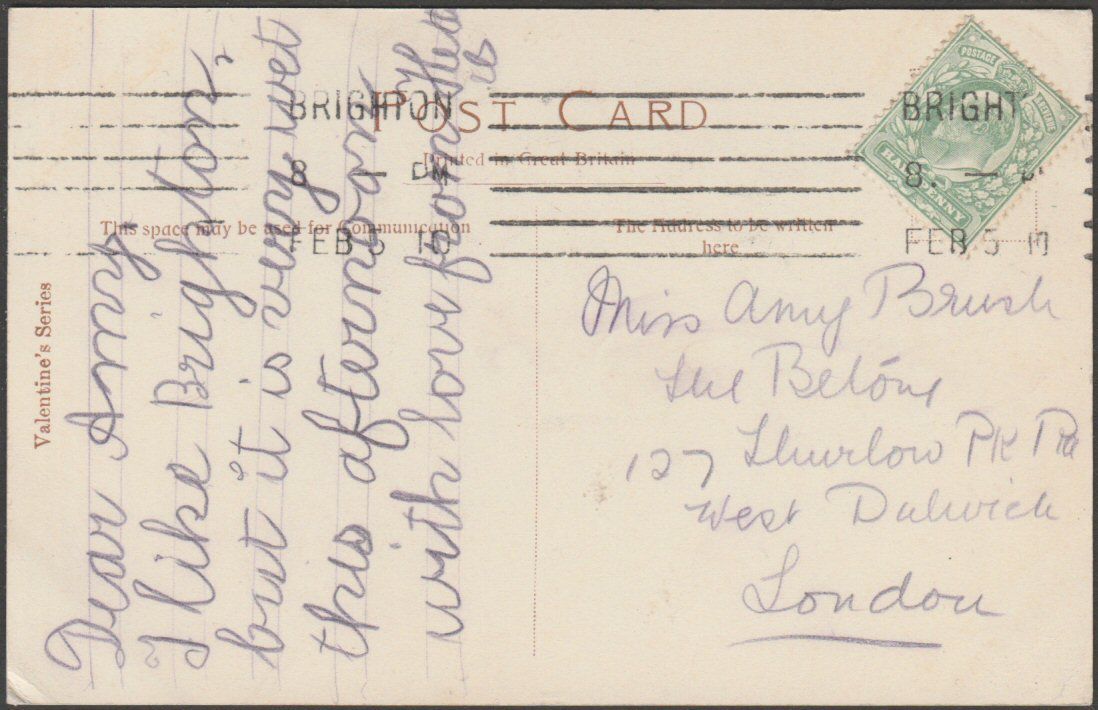 POST CARD
Printed in Great Britain
This space may be used for Communication
The Address to be written
here
Valentine's Series
BRIGHTON
8 - PM
FEB 5 10
BRIGHT
8. -
FEB 5 1
POSTAGE
HALFPENNY
Dear Amy
I like Brighton,
but it is very wet
this afternoon
with love from
Miss Amy Brush
The
127 Thurlow Pk Rd
West Dulwich
London